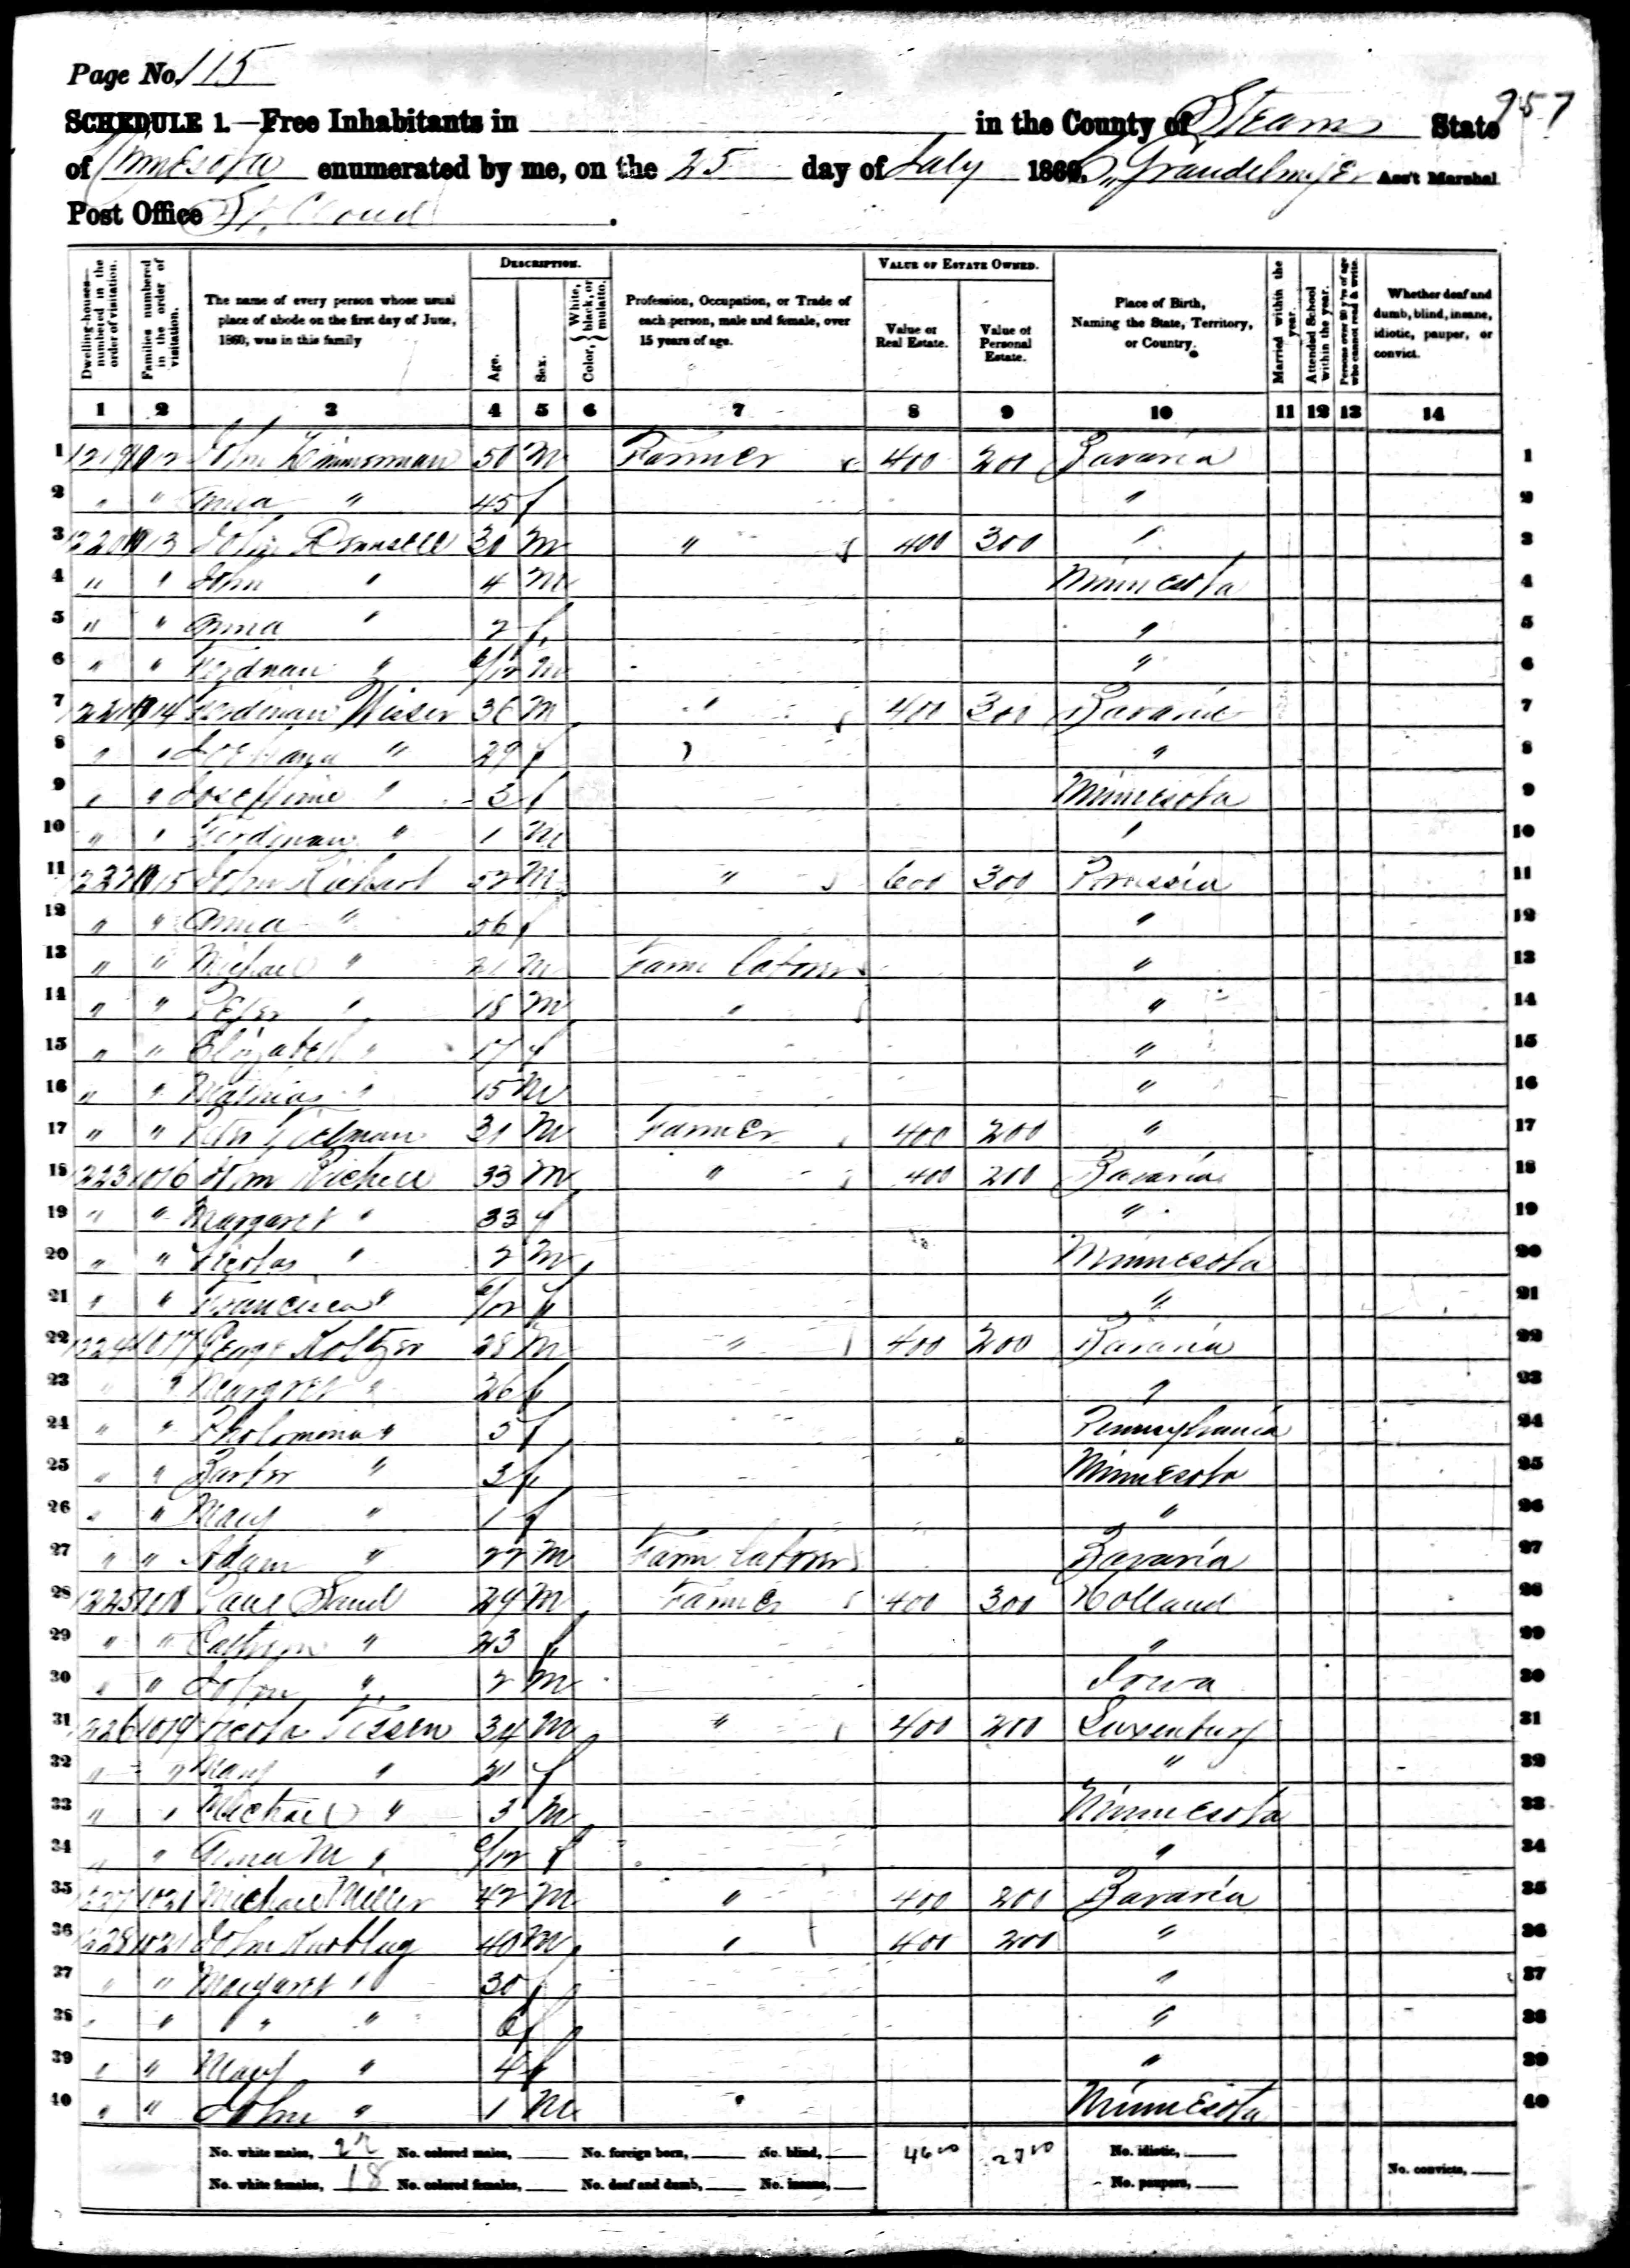 Page No. 115
957
SCHEDULE 1.—Free Inhabitants in in the County of Stearns State
of Minnesota enumerated by me, on the 25 day of July 1860. Ass't Marshal
Post Office St. Cloud .
Dwelling-houses— numbered in the order of visitation.
Families numbered in the order of visitation.
The name of every person whose usual place of abode on the first day of June, 1860, was in this family
DESCRIPTION.
Age.
Sex.
Color, { White, black, or mulatto.
Profession, Occupation, or Trade of each person, male and female, over 15 years of age.
VALUE OF ESTATE OWNED.
Value of Real Estate.
Value of Personal Estate.
Place of Birth, Naming the State, Territory, or Country.
Married within the year.
Attended School within the year.
Persons over 20 y'rs of age who cannot read & write.
Whether deaf and dumb, blind, insane, idiotic, pauper, or convict.
1 2 3 4 5 6 7 8 9 10 11 12 13 14
1 1219 1012 John Zimmerman 50 M Farmer 400 200 Bavaria 1
2 " " Anna " 45 f " 2
3 1220 1013 John 30 M " 400 300 " 3
4 " " John " 4 M Minnesota 4
5 " " Anna " 2 f " 5
6 " " Ferdnan " 6/12 M " 6
7 1221 1014 Ferdinan Wieser 36 M " 400 300 Bavaria 7
8 " " " 29 f " 8
9 " " Josephine " 3 f Minnesota 9
10 " " Ferdinan " 1 M " 10
11 1222 1015 John Richart 52 M " 600 300 Prussia 11
12 " " Anna " 56 f " 12
13 " " Michael " 21 M Farm laborer " 13
14 " " Peter " 18 M " " 14
15 " " Elizabeth " 17 f " 15
16 " " Mathias " 15 M " 16
17 " " Peter 31 M Farmer 400 200 " 17
18 1223 1016 33 M " 400 200 Bavaria 18
19 " " Margaret " 33 f " 19
20 " " Nicolas " 2 M Minnesota 20
21 " " Francisca " 6/12 f " 21
22 1224 1017 George Koltzer 28 M " 400 200 Bavaria 22
23 " " Margret " 26 f " 23
24 " " Pholomena " 5 f Pennsylvania 24
25 " " Barber " 3 f Minnesota 25
26 " " Mary " 1 f " 26
27 " " Adam " 22 M Farm laborer Bavaria 27
28 1225 1018 Paul Sand 29 M Farmer 400 300 Holland 28
29 " " " 23 f " 29
30 " " John " 2 M Iowa 30
31 1226 1019 Nicola Tissen 34 M " 400 200 Luxenburg 31
32 " " Mary " 21 f " 32
33 " " Michael " 3 M Minnesota 33
34 " " Anna M " 6/12 f " 34
35 1227 Michael Miller 42 M " 400 200 Bavaria 35
36 1228 1021 John 40 M " 400 200 " 36
37 " " Margaret " 30 f " 37
38 " " " " 6 f " 38
39 " " Mary " 4 f " 39
40 " " John " 1 M Minnesota 40
No. white males, 22 No. colored males, No. foreign born, No. blind, 4600 2700 No. idiotic,
No. white females, 18 No. colored females, No. deaf and dumb, No. insane, No. paupers, No. convicts,